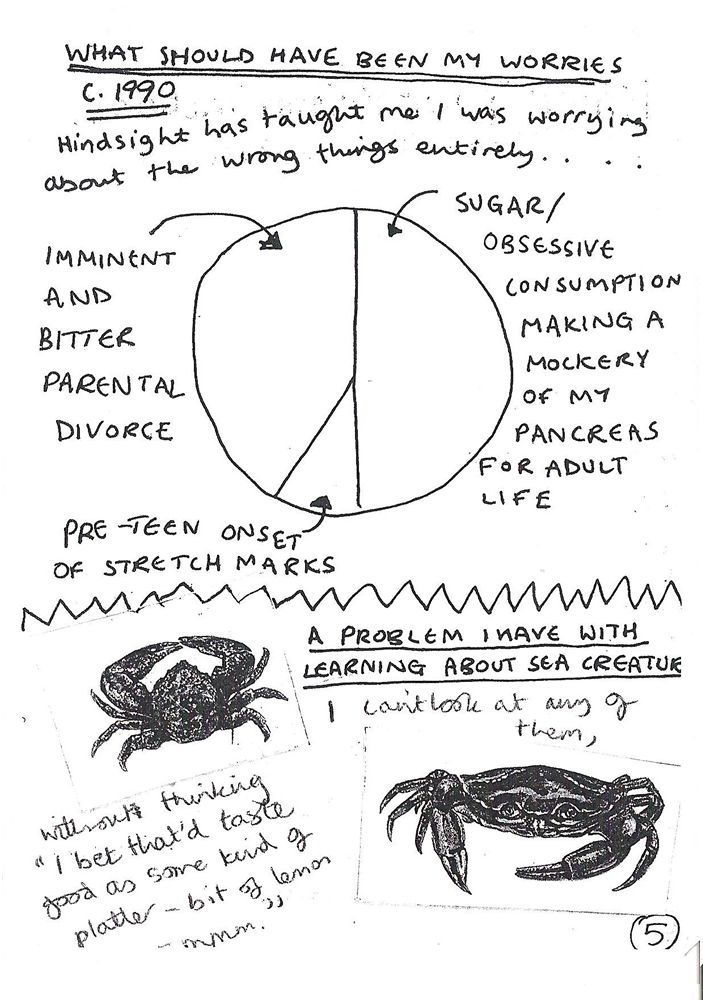 WHAT SHOULD HAVE BEEN MY WORRIES
C. 1990
Hindsight has taught me I was worrying
about the wrong things entirely. . . . .
IMMINENT
AND
BITTER
PARENTAL
DIVORCE
SUGAR/
OBSESSIVE
CONSUMPTION
MAKING A
MOCKERY
OF MY
PANCREAS
FOR ADULT
LIFE
PRE-TEEN ONSET
OF STRETCH MARKS
A PROBLEM I HAVE WITH
LEARNING ABOUT SEA CREATUR
I can't look at any of
them,
without thinking
"I bet that'd taste
good as some kind of
platter - bit of lemon
- mmm."
(5)